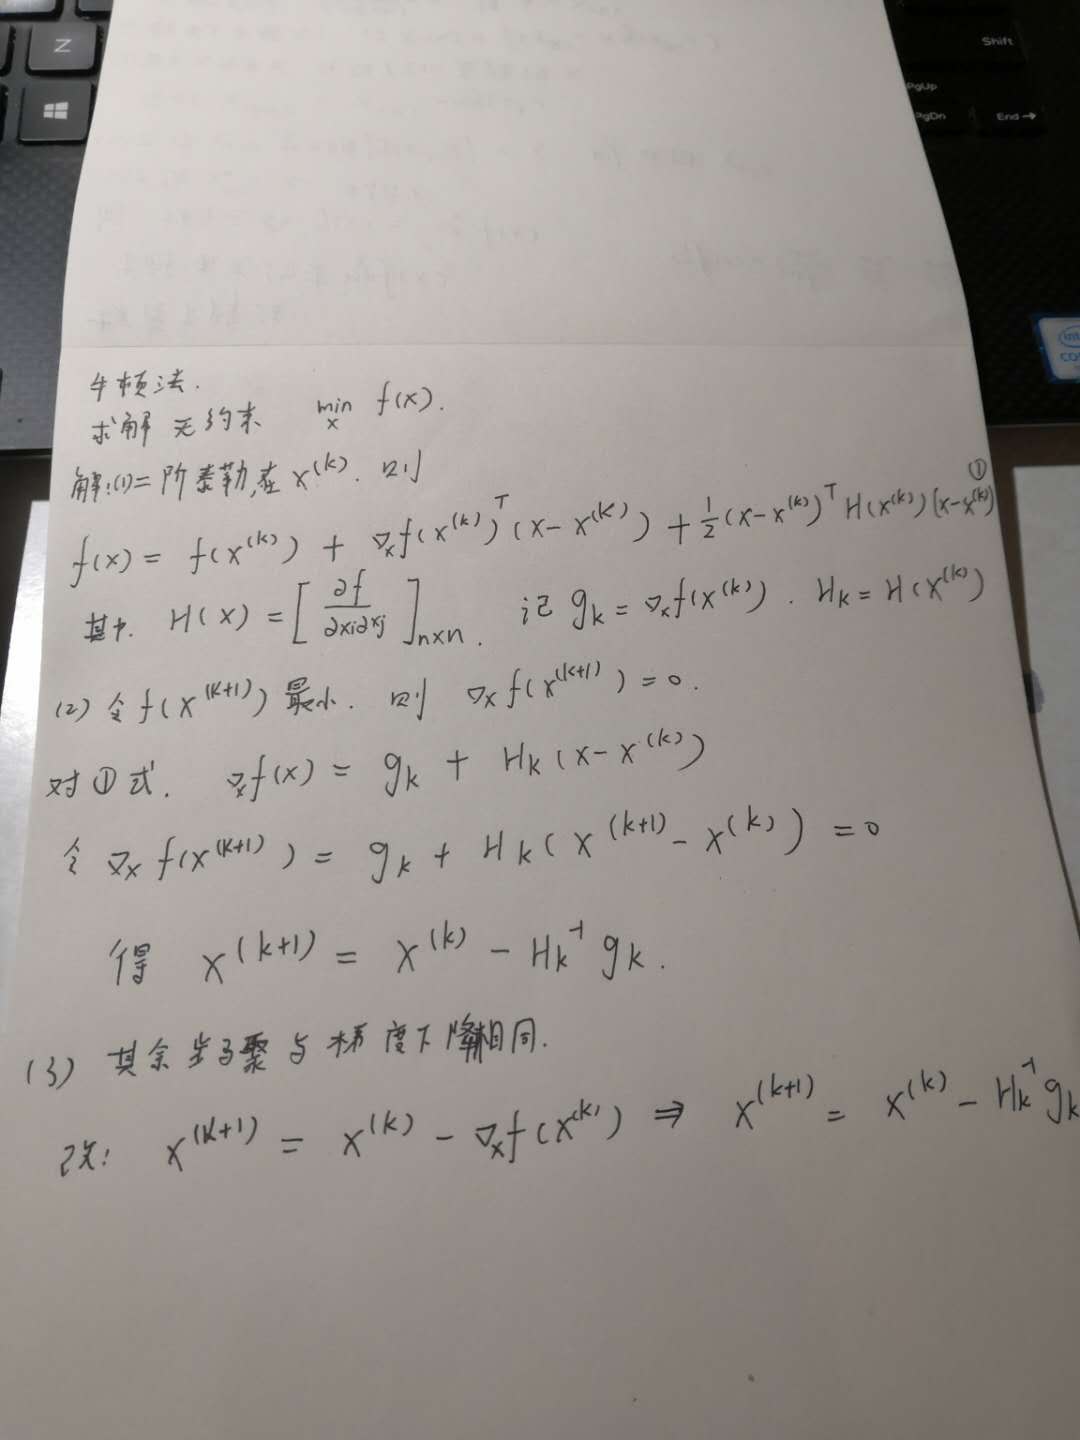 Z
Shift
PgUp
PgDn
End →
牛顿法.
求解 无约束 min_x f(x).
解:(1)二阶泰勒,在 x^(k). 则
f(x) = f(x^(k)) + ∇_x f(x^(k))^T (x - x^(k)) + 1/2 (x - x^(k))^T H(x^(k)) (x - x^(k)) ①
其中. H(x) = [∂f/∂xi∂xj]_n×n. 记 g_k = ∇_x f(x^(k)). H_k = H(x^(k))
(2) 令 f(x^(k+1)) 最小. 则 ∇_x f(x^(k+1)) = 0.
对①式. ∇_x f(x) = g_k + H_k (x - x^(k))
令 ∇_x f(x^(k+1)) = g_k + H_k (x^(k+1) - x^(k)) = 0
得 x^(k+1) = x^(k) - H_k^-1 g_k.
(3) 其余步骤与梯度下降相同.
改: x^(k+1) = x^(k) - ∇_x f(x^(k)) ⇒ x^(k+1) = x^(k) - H_k^-1 g_k